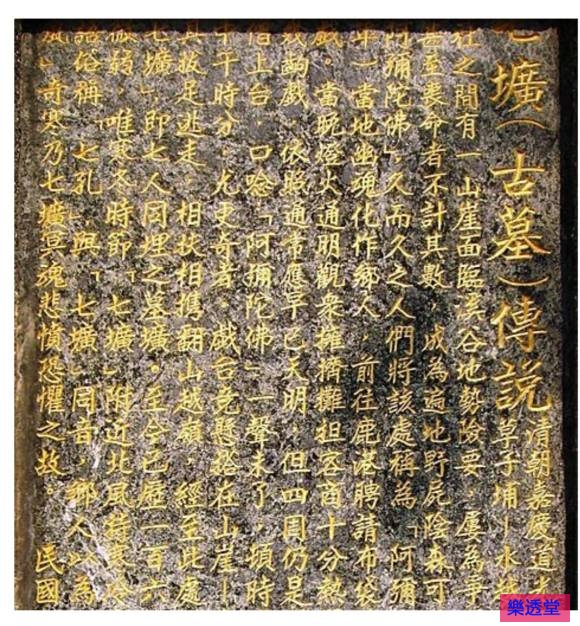 壙(古墓)傳說
清朝嘉慶道光
草子埔—水
社之間有一山崖面臨溪谷地勢險要,屢為爭
甚至喪命者不計其數,成為遍地野屍陰森可
阿彌陀佛」久而久之人們將該處稱為「阿彌
年一當地幽魂化作鄉人,前往鹿港聘請布袋
戲。當晚燈火通明觀衆擁擠攤担容商十分熱
幾齣戲,依照通常應早已天明,但四周仍是
僧上台,口唸「阿彌陀佛」一聲未了,頃時
子午時分,尤更奇者,戲台竟懸搭在山崖上
具拔足逃走,相扶相携翻山越嶺,經至此處
七壙」即七人同埋之墓壙。至今已歷一百六
微弱,唯寒冬時節「七壙」附近北風特寒冷
語俗稱「七孔」與「七壙」同音,鄉人以為
風」奇寒乃七壙冥魂悲憤恐懼之故。 民國
樂透堂